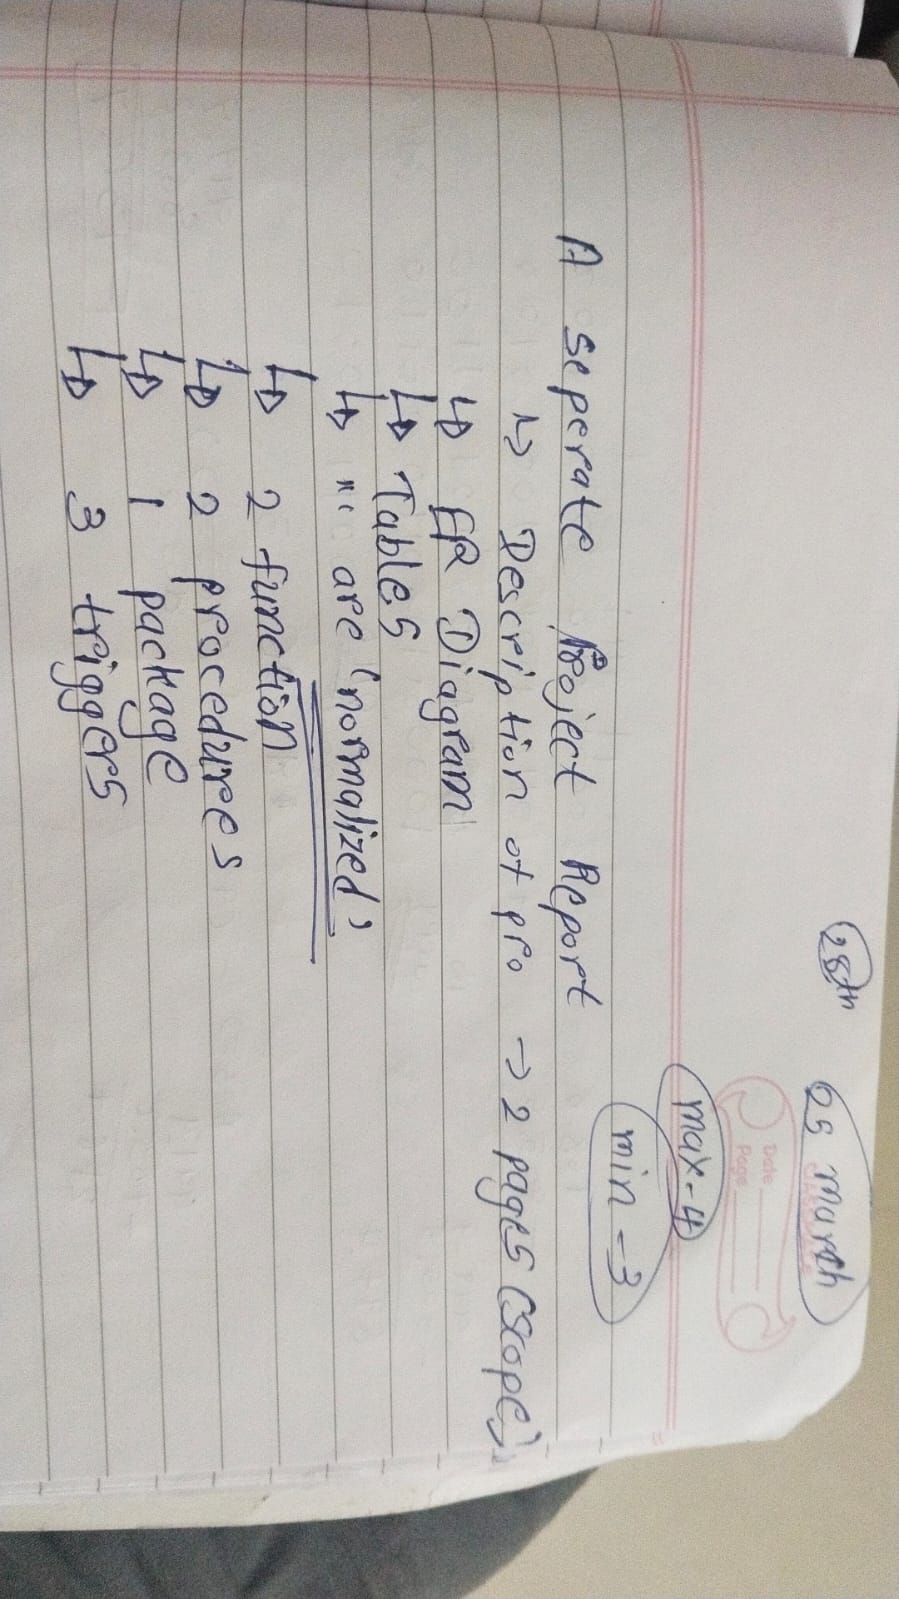 28th
25 march
Date
Page
max-4
min-3
A seperate Project Report
↳ Description of pro → 2 pages (scope),
↳ ER Diagram
↳ Tables
↳ "" are 'normalized'
↳ 2 function
↳ 2 procedures
↳ 1 package
↳ 3 triggers